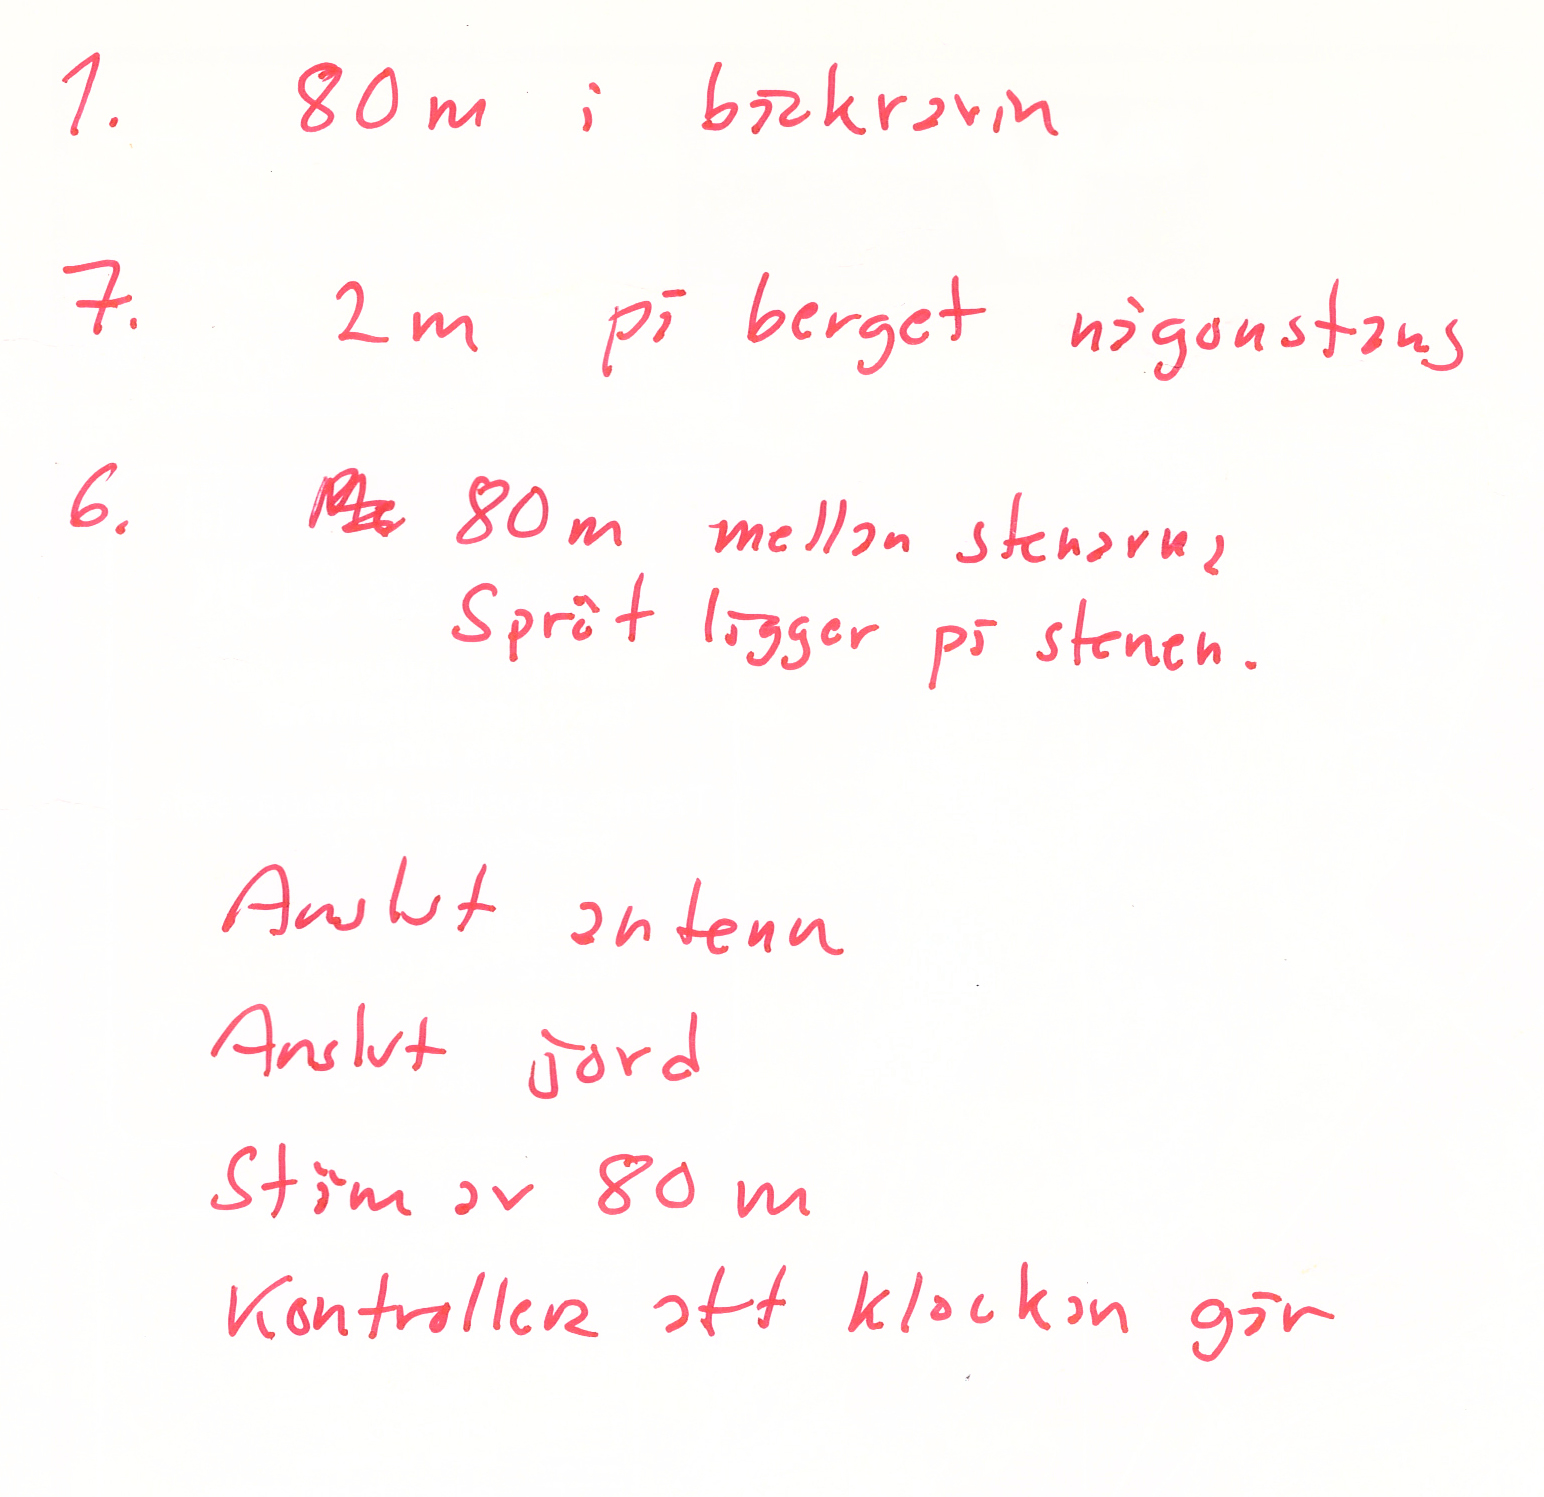 1. 80 m i bäckravin
7. 2 m på berget någonstans
6. 80 m mellan stenarna,
Spröt ligger på stenen.
Anslut antenn
Anslut jord
Stäm av 80 m
Kontrollera att klockan går